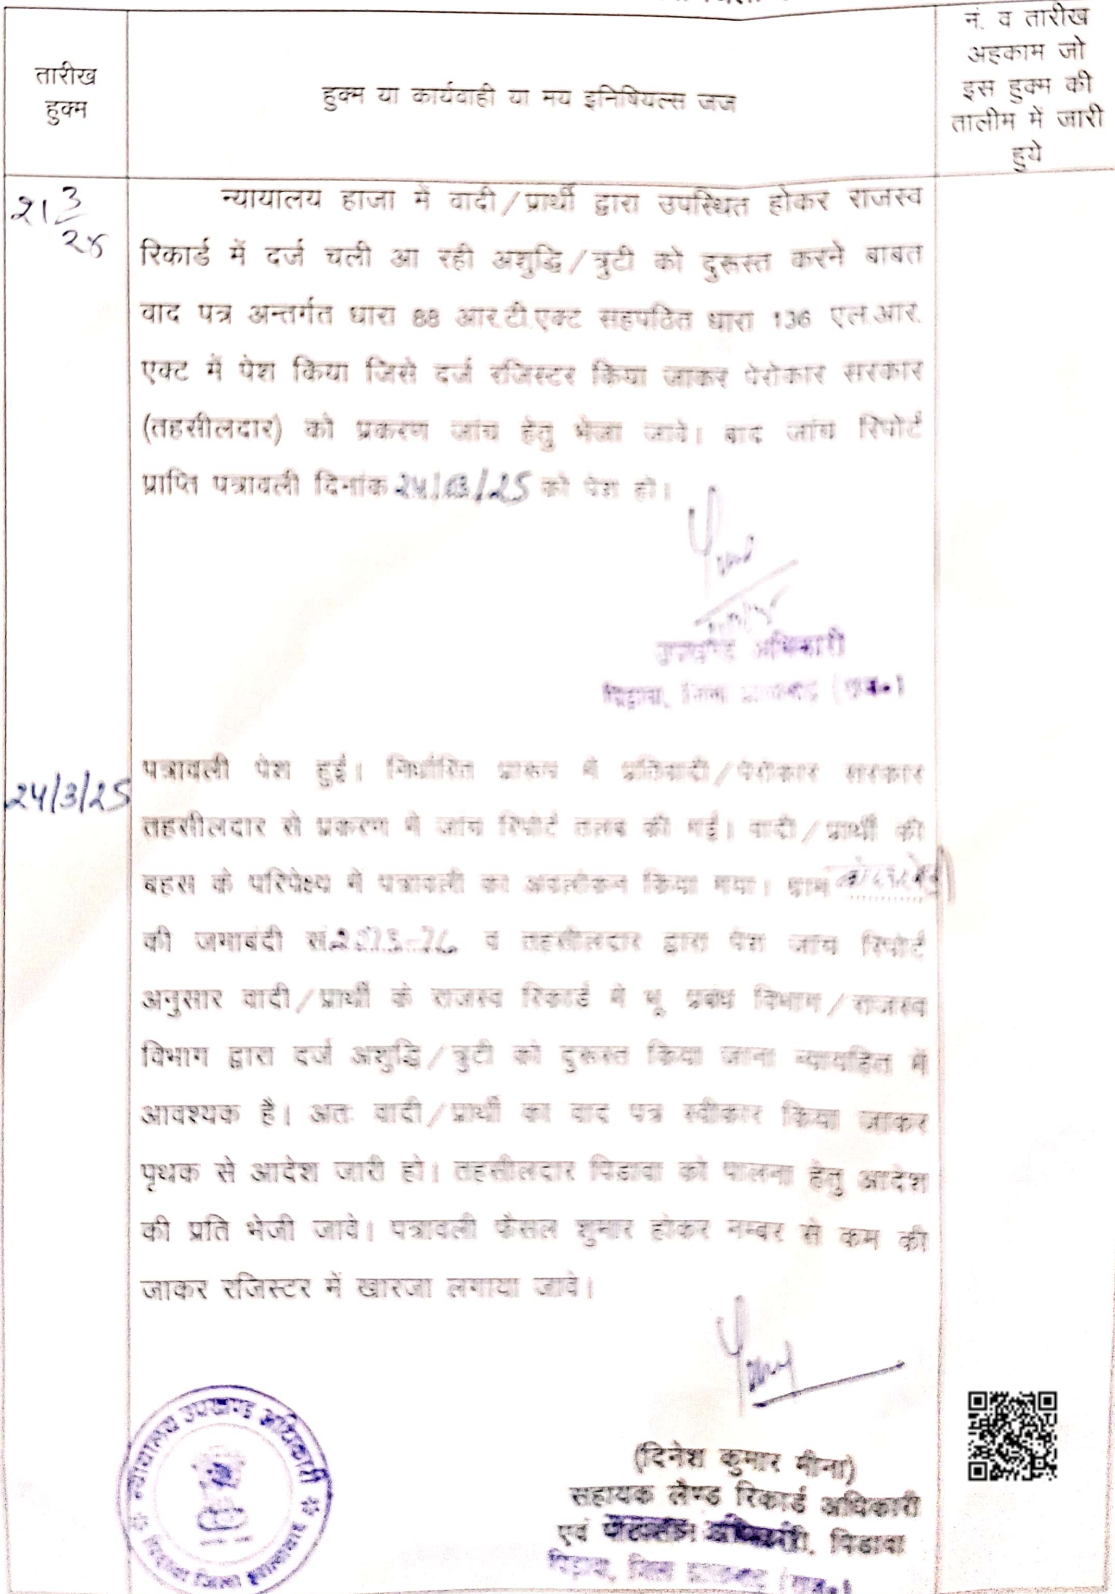 तारीख
हुक्म
हुक्म या कार्यवाही या मय इनिषियल्स जज
नं. व तारीख
अहकाम जो
इस हुक्म की
तालीम में जारी
हुये
21 3/25
न्यायालय हाजा में वादी/प्रार्थी द्वारा उपस्थित होकर राजस्व
रिकार्ड में दर्ज चली आ रही अशुद्धि/त्रुटी को दुरूस्त करने बाबत
वाद पत्र अन्तर्गत धारा 88 आर.टी.एक्ट सहपठित धारा 136 एल.आर.
एक्ट में पेश किया जिसे दर्ज रजिस्टर किया जाकर पेरोकार सरकार
(तहसीलदार) को प्रकरण जांच हेतु भेजा जावे। बाद जांच रिपोर्ट
प्राप्ति पत्रावली दिनांक 24/03/25 को पेश हो।
उपखण्ड अधिकारी
पिड़ावा, जिला झालावाड़ (राज.)
24/3/25
पत्रावली पेश हुई। निर्धारित प्रारूप में प्रतिवादी/पेरोकार सरकार
तहसीलदार से प्रकरण में जांच रिपोर्ट तलब की गई। वादी/प्रार्थी की
बहस के परिपेक्ष्य में पत्रावली का अवलोकन किया गया। ग्राम
की जमाबंदी सं. व तहसीलदार द्वारा पेश जांच रिपोर्ट
अनुसार वादी/प्रार्थी के राजस्व रिकार्ड में भू प्रबंध विभाग/राजस्व
विभाग द्वारा दर्ज अशुद्धि/त्रुटी को दुरूस्त किया जाना न्यायहित में
आवश्यक है। अतः वादी/प्रार्थी का वाद पत्र स्वीकार किया जाकर
पृथक से आदेश जारी हो। तहसीलदार पिडावा को पालना हेतु आदेश
की प्रति भेजी जावे। पत्रावली फैसल शुमार होकर नम्बर से कम की
जाकर रजिस्टर में खारजा लगाया जावे।
(दिनेश कुमार मीना)
सहायक लैण्ड रिकार्ड अधिकारी
एवं अधिकारी, पिडावा
पिड़ावा, जिला झालावाड़ (राज.)
न्यायालय उपखण्ड अधिकारी
पिड़ावा जिला झालावाड़